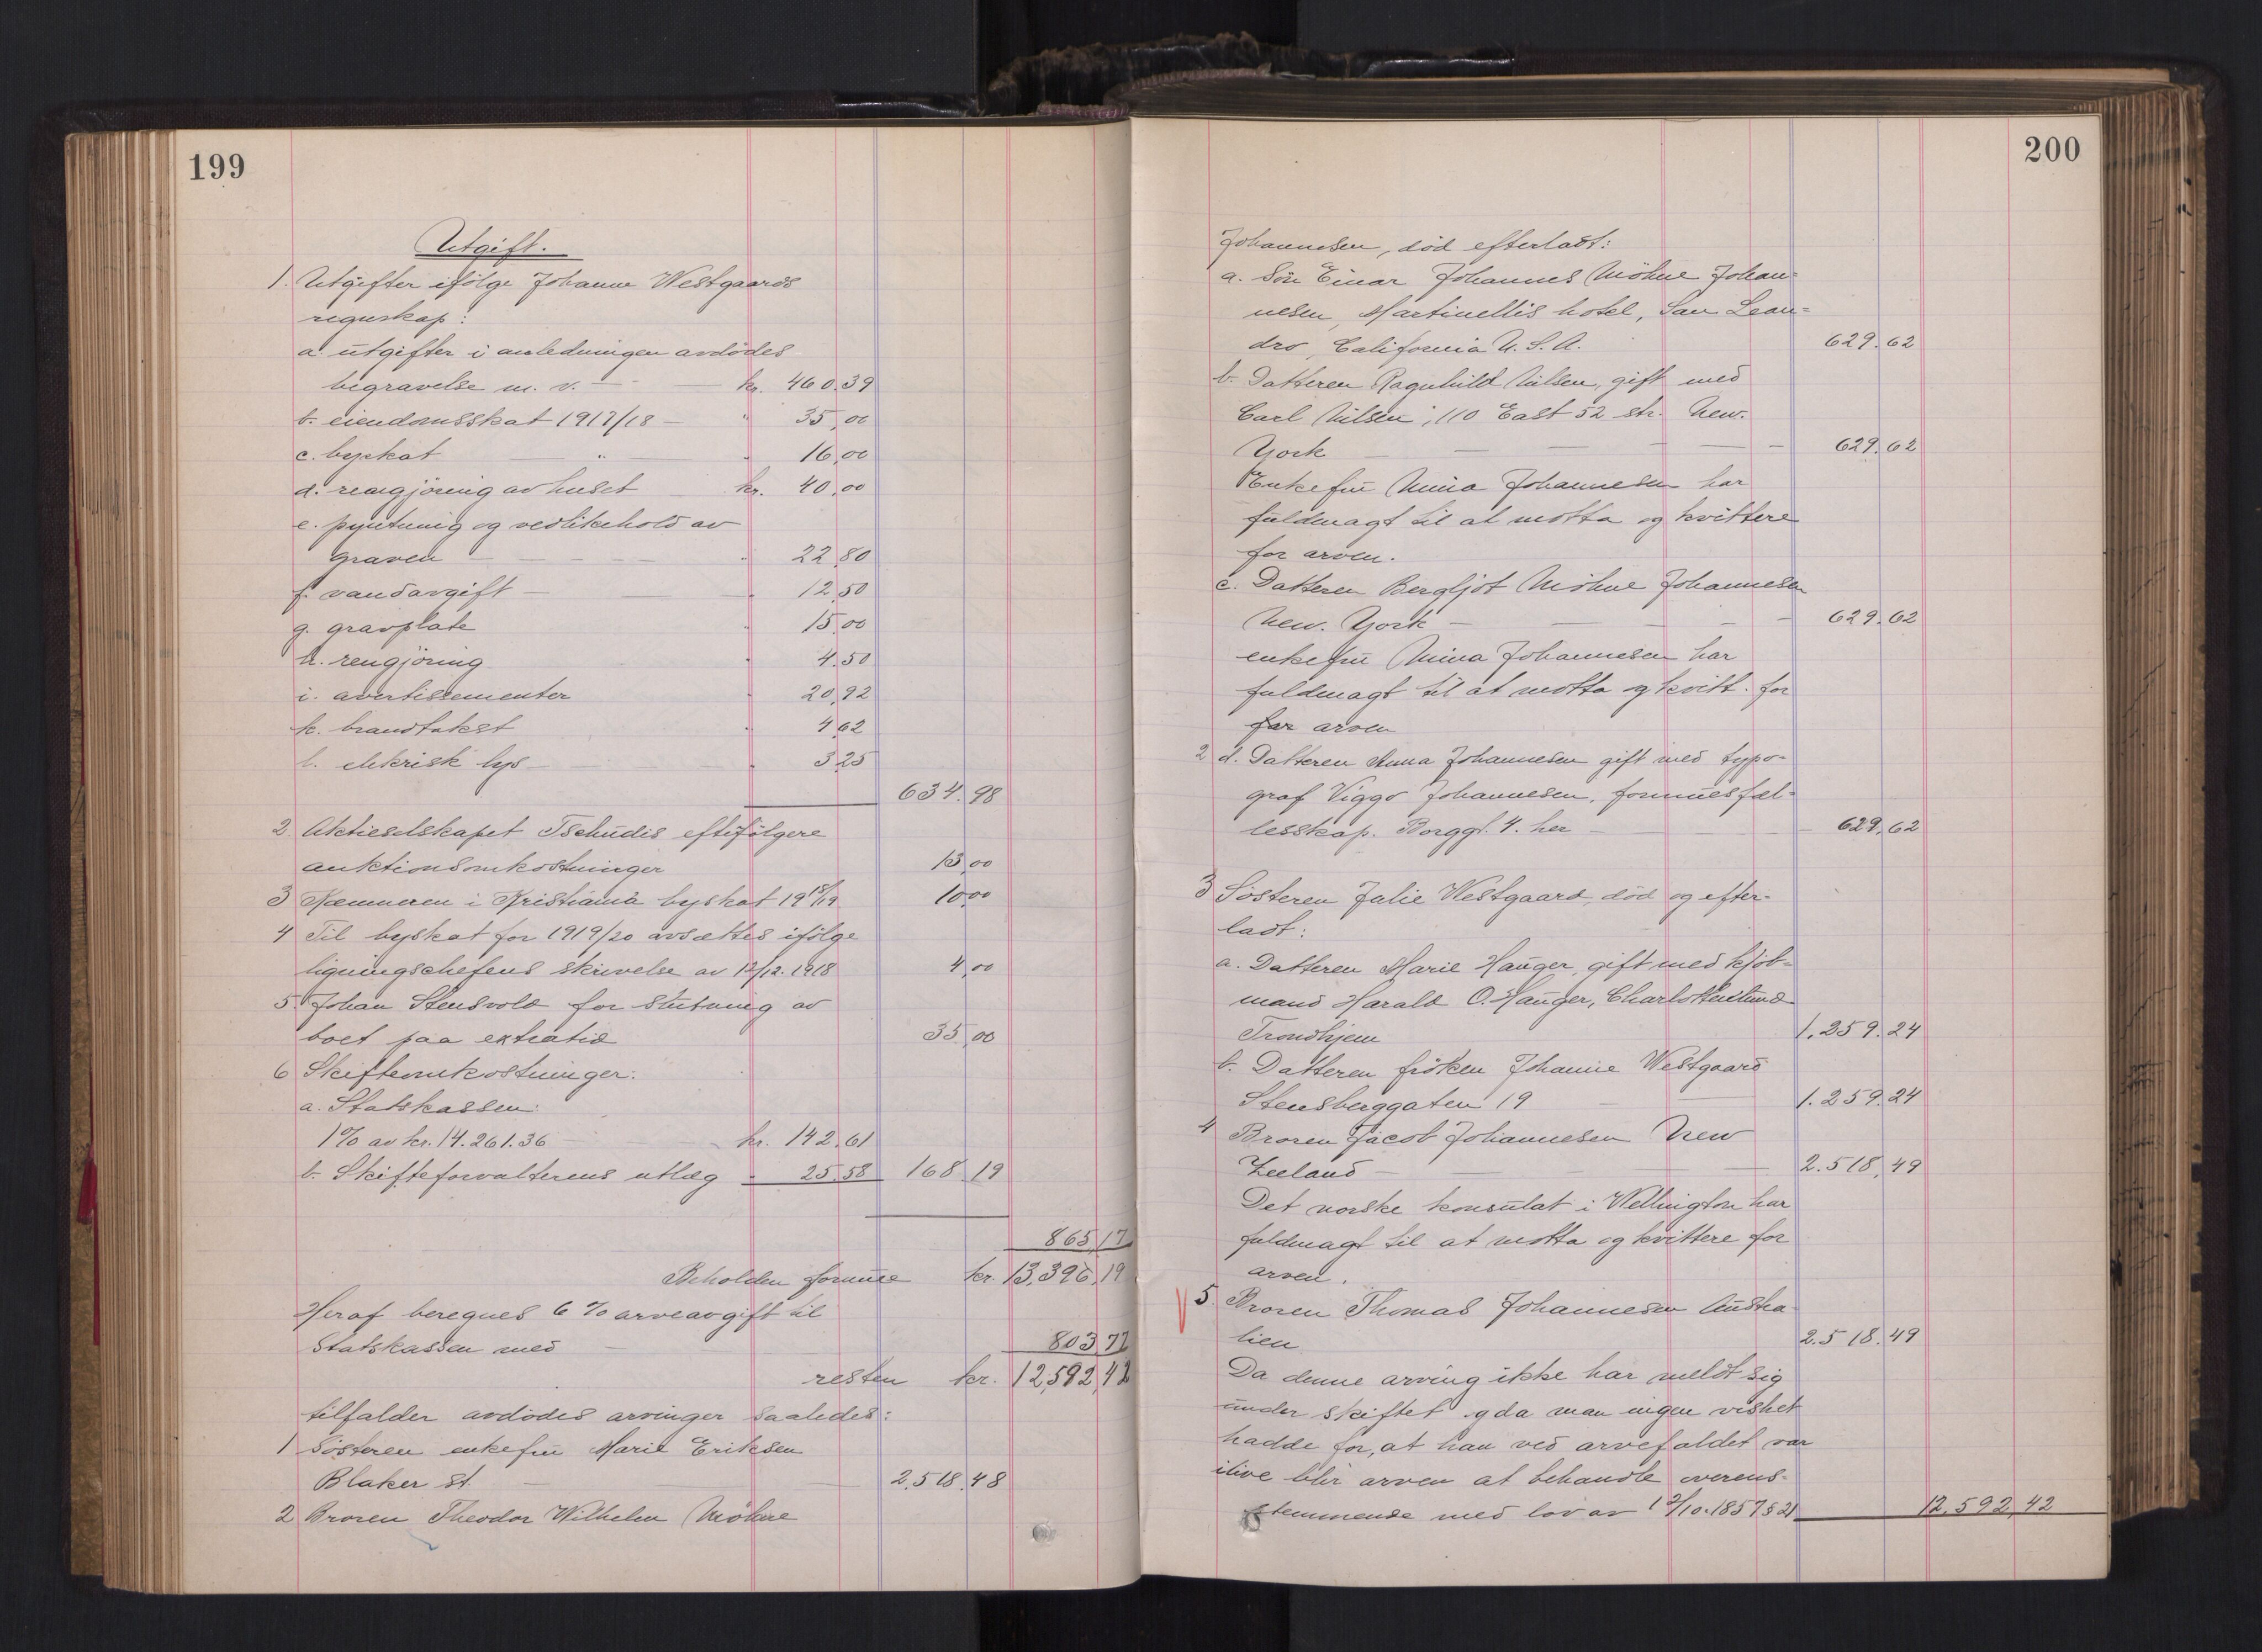 199
Utgift.
1. Utgifter ifölge Johanne Westgaards
regnskap:
a. utgifter i anledningen avdödes
begravelse m. v. — — kr. 460.39
b. eiendomsskat 1917/18 — " 35,00
c. byskat — " — " 16,00
d. rengjöring av huset kr. 40,00
e. pyntning og vedlikehold av
graven — — — " 22,80
f. vandavgift — — " 12,50
g. gravplate " 15,00
h. rengjöring " 4.50
i. avertissementer " 20,92
k. brandtakst " 4,62
l. elektrisk lys — — " 3,25
634.98
2 Aktieselskapet Tschudis efterfölgere
auktionsomkostninger 13,00
3 Kæmneren i Kristiania byskat 19 18/19 10,00
4 Til byskat for 1919/20 avsættes ifölge
ligningschefens skrivelse av 12/12.1918 4,00
5 Johan Stensvold for slutning av
boet paa extratid 35,00
6 Skifteomkostninger:
a. Statskassen:
1% av kr. 14.261.36 — kr. 142,61
b. Skifteforvalterens utlæg " 25.58 168.19
865,17
Beholden formue kr. 13,396,19
Heraf beregnes 6% arveavgift til
Statskassen med — 803,77
resten kr. 12,592,42
tilfalder avdödes arvinger saaledes:
1 Sösteren enkefru Marie Eriksen
Blaker st. — — 2.518.48
2 Broren Theodor Wilhelm Möhne
200
Johannesen, död efterladt:
a. Sön Einar Johannes Möhne Johan-
nesen, Martinellis hotel, San Lean-
dro, California U.S.A. 629.62
b. Datteren Ragnhild Nilsen, gift med
Carl Nilsen, 110 East 52 str. New.
York — — — — — 629.62
Enkefru Mina Johannesen har
fuldmagt til at motta og kvittere
for arven.
c. Datteren Bergljot Möhne Johannesen
New. York — — — — — 629.62
enkefru Mina Johannesen har
fuldmagt til at motta og kvitt. for
for arven
2 d. Datteren Anna Johannesen gift med typo-
graf Viggo Johannesen, formuesfæl-
lesskap. Borggt. 4. her — — — 629,62
3 Sösteren Julie Westgaard, död og efter-
ladt:
a. Datteren Marie Hauger, gift med kjöb-
mand Harald O. Hauger, Charlottenlund
Trondhjem 1.259.24
b. Datteren fröken Johanne Westgaard
Stensberggaten 19 — — 1.259.24
4 Broren Jacob Johannesen New
Zeeland — — — — 2.518,49
Det norske konsulat i Wellington har
fuldmagt til at motta og kvittere for
arven.
5. Broren Thomas Johannesen Austra-
lien 2.518.49
Da denne arving ikke har meldt sig
under skiftet og da man ingen vished
hadde for, at han ved arvefaldet var
ilive blir arven at behandle overens-
stemmende med lov av 12/10.1857 § 21 12.592,42